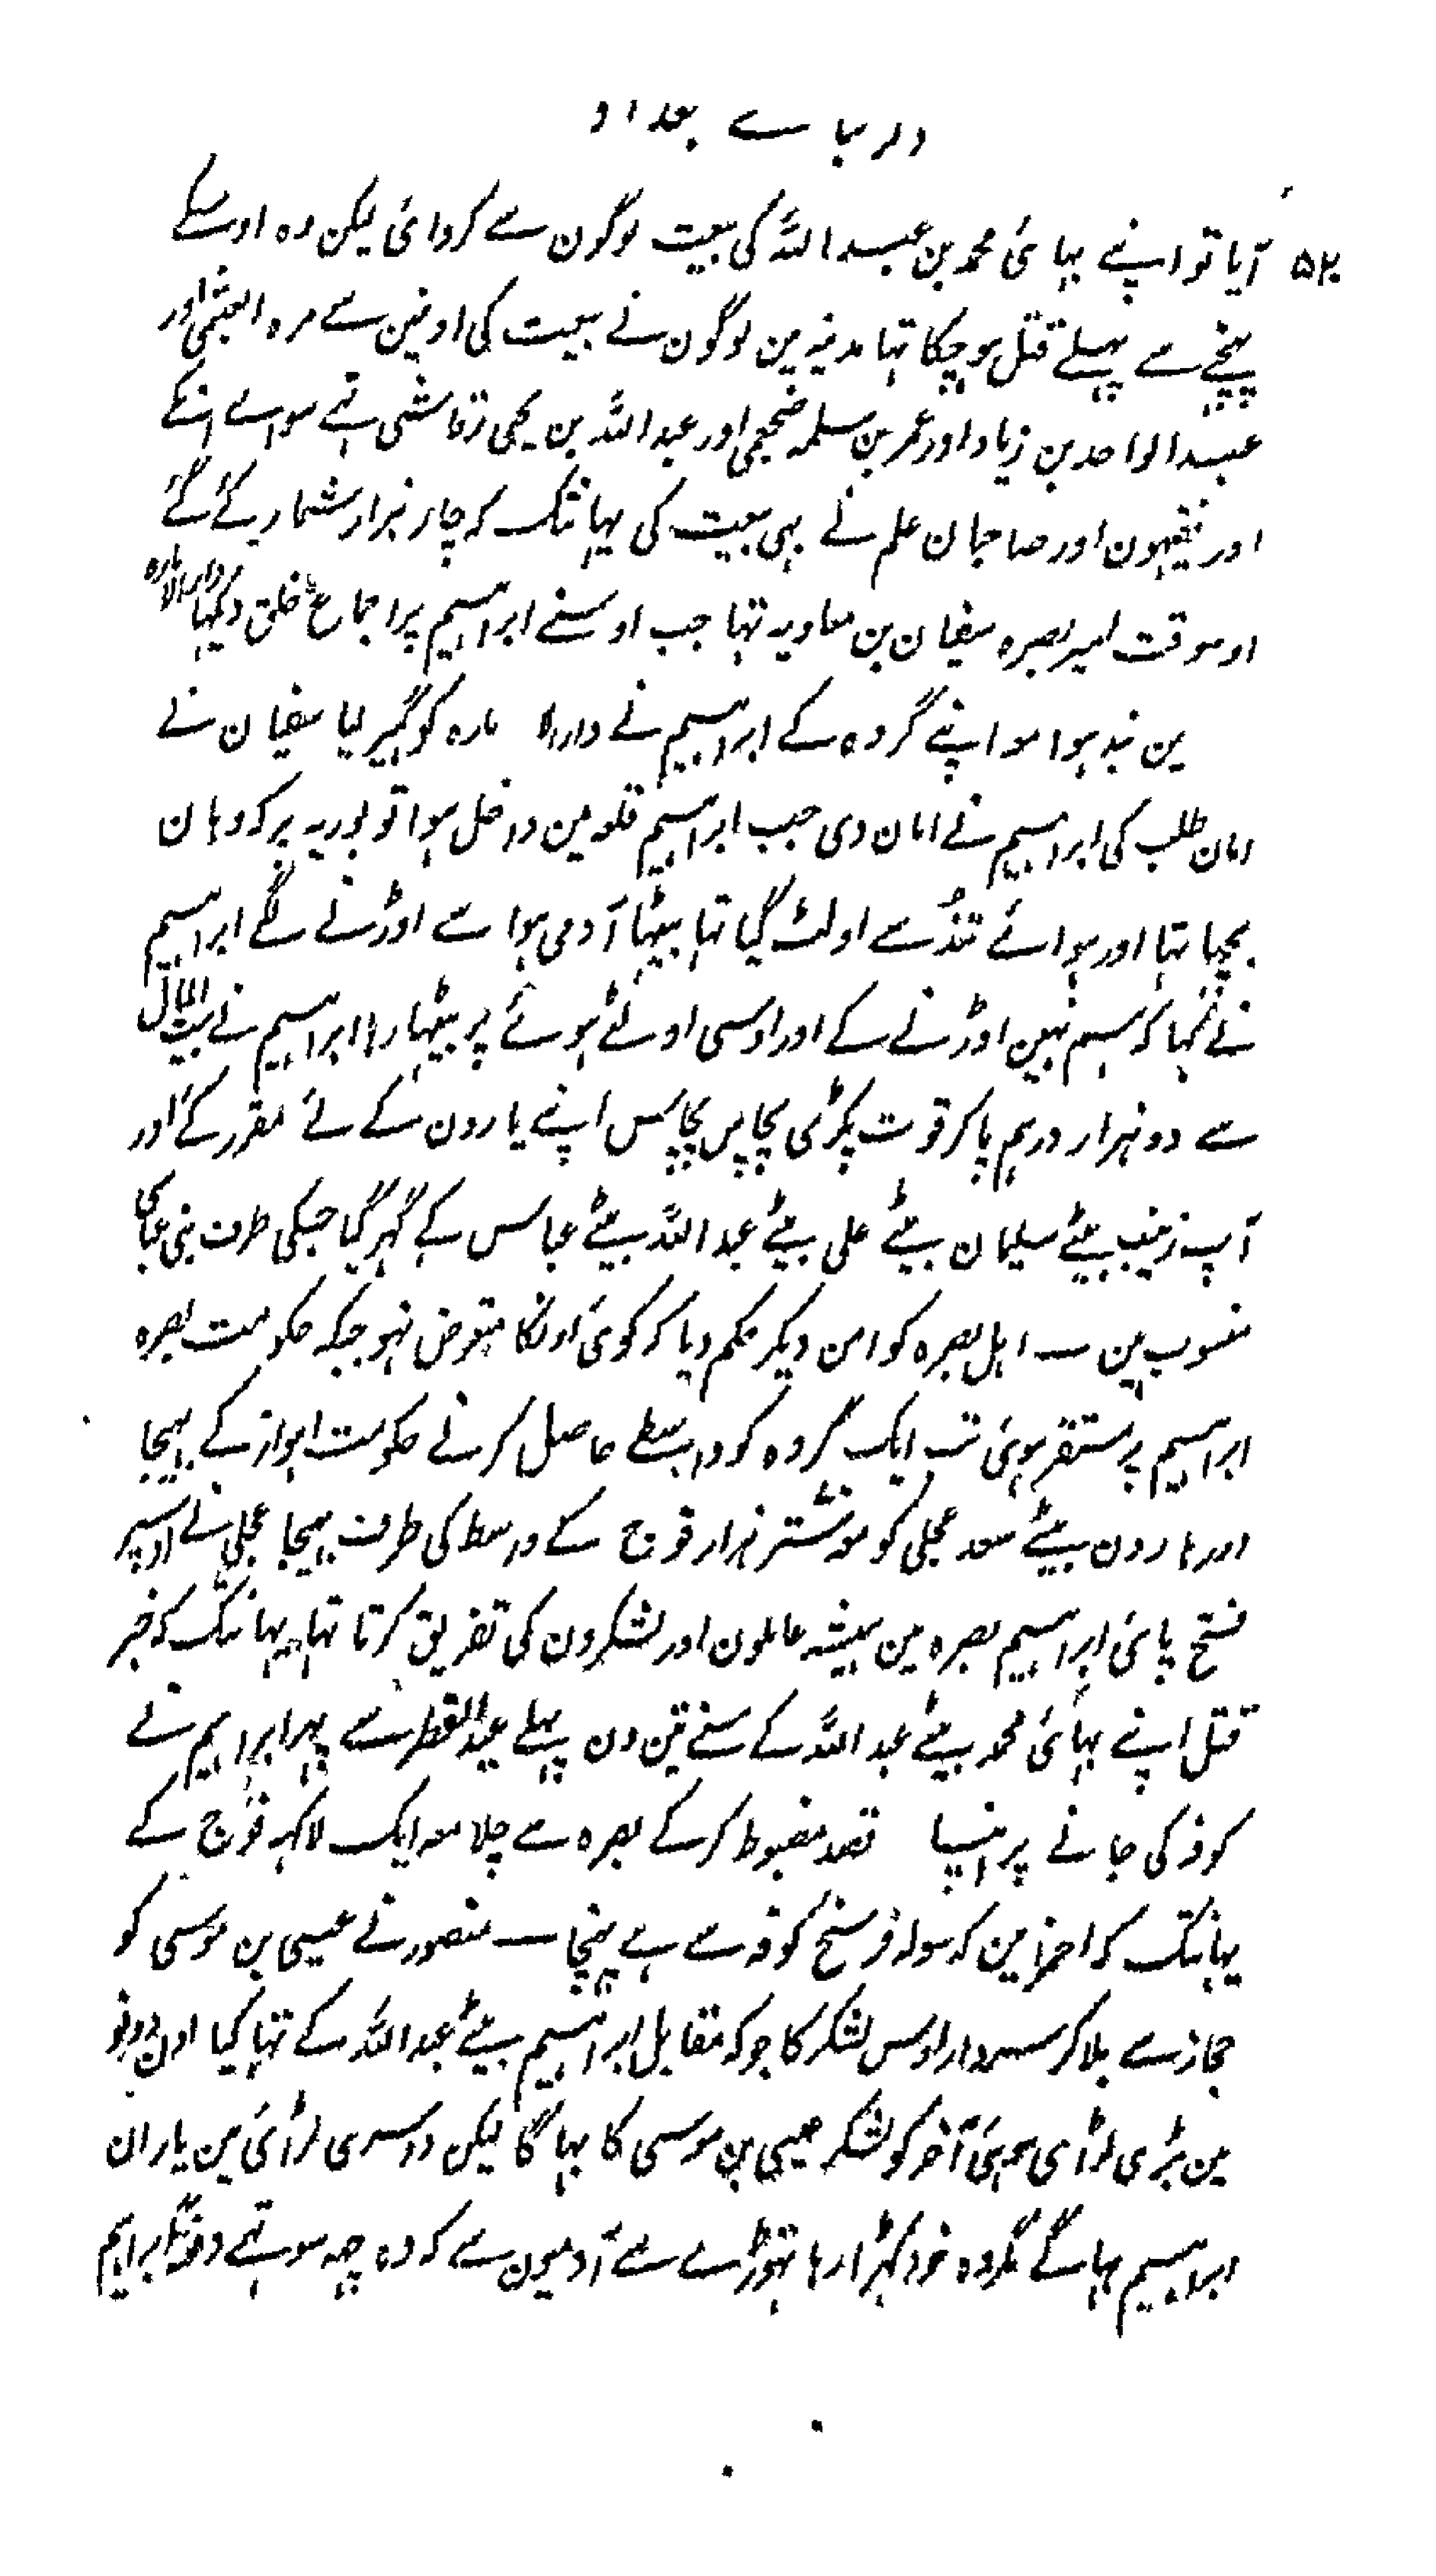 دلربا سے بغداد
۵۲ آیا تو اپنے بہائی محمد بن عبد اللہ کی بیعت لوگون سے کروائی لیکن وہ اوسکے
پہنچنے سے پہلے قتل ہو چکا تہا مدینہ مین لوگون نے بیعت کی اونمین سے مرہ العبشمی اور
عبد الواحد بن زیاد اور عمر بن سلمہ ہجیمی اور عبد اللہ بن یحی رقاشی تہے سواے انکے
اور فقیہون اور صاحبان علم نے بہی بیعت کی یہانتک کہ چار ہزار شمار کئے گئے
اوسوقت امیر بصرہ سفیان بن معاویہ تہا جب اوسنے ابراہیم پر اجماع خلق دیکہا دار الامارہ
مین بند ہوا مو اپنے گروہ کے ابراہیم نے دار الا مارہ کو گہیر لیا سفیان نے
امان طلب کی ابراہیم نے امان دی جب ابراہیم قلعہ مین داخل ہوا تو بوریہ پر کہ وہان
بچہا تہا اور ہوائے تند سے اولٹ گیا تہا بیٹہا آدمی ہوا سے اوڑنے لگے ابراہیم
نے کہا کہ ہم نہین اوڑنے کے اور اوسی اولٹے ہوئے پر بیٹہا رہا ابراہیم نے بیت المال
سے دو ہزار درہم پاکر قوت پکڑی پچاس پچاس اپنے یارون کے لئے مقرر کئے اور
آپ زینب بیٹے سلیمان بیٹے علی بیٹے عبد اللہ بیٹے عباس کے گہر گیا جسکی طرف بنی عباس
منسوب ہین ۔ اہل بصرہ کو امن دیکر حکم دیا کہ کوئی اونکا متعرض نہو جبکہ حکومت بصرہ
ابراہیم پر مستقر ہوئی تب ایک گروہ کو واسطے حاصل کرنے حکومت اہواز کے بہیجا
اور ہارون بیٹے سعد عجلی کو مو ستر ہزار فوج کے واسط کی طرف بہیجا عجلی نے اوسپر
فتح پائی ابراہیم بصرہ مین ہمیشہ عاملون اور لشکرون کی تفریق کرتا تہا یہانتک کہ خبر
قتل اپنے بہائی محمد بیٹے عبد اللہ کے سنے تین دن پہلے عید الفطر سے پہر ابراہیم نے
کوفہ کی جانے پر قصد مضبوط کر کے بصرہ سے چلا معہ ایک لاکہہ فوج کے
یہانتک کہ احمزا مین کہ سولہ فرسخ کوفہ سے ہے پہنچا ۔ منصور نے عیسی بن موسی کو
حجاز سے بلا کر سردار اوس لشکر کا جو کہ مقابل ابراہیم بیٹے عبد اللہ کے تہا کیا اون دونو
مین بڑی لڑائی ہوئی آخر کو لشکر عیسی بن موسی کا بہاگا لیکن دوسری لڑائی مین یاران
ابراہیم بہاگے مگر وہ خود کہڑا رہا تہوڑے سے آدمیون سے کہ وہ چہہ سو تہے دفعۃً ابراہیم